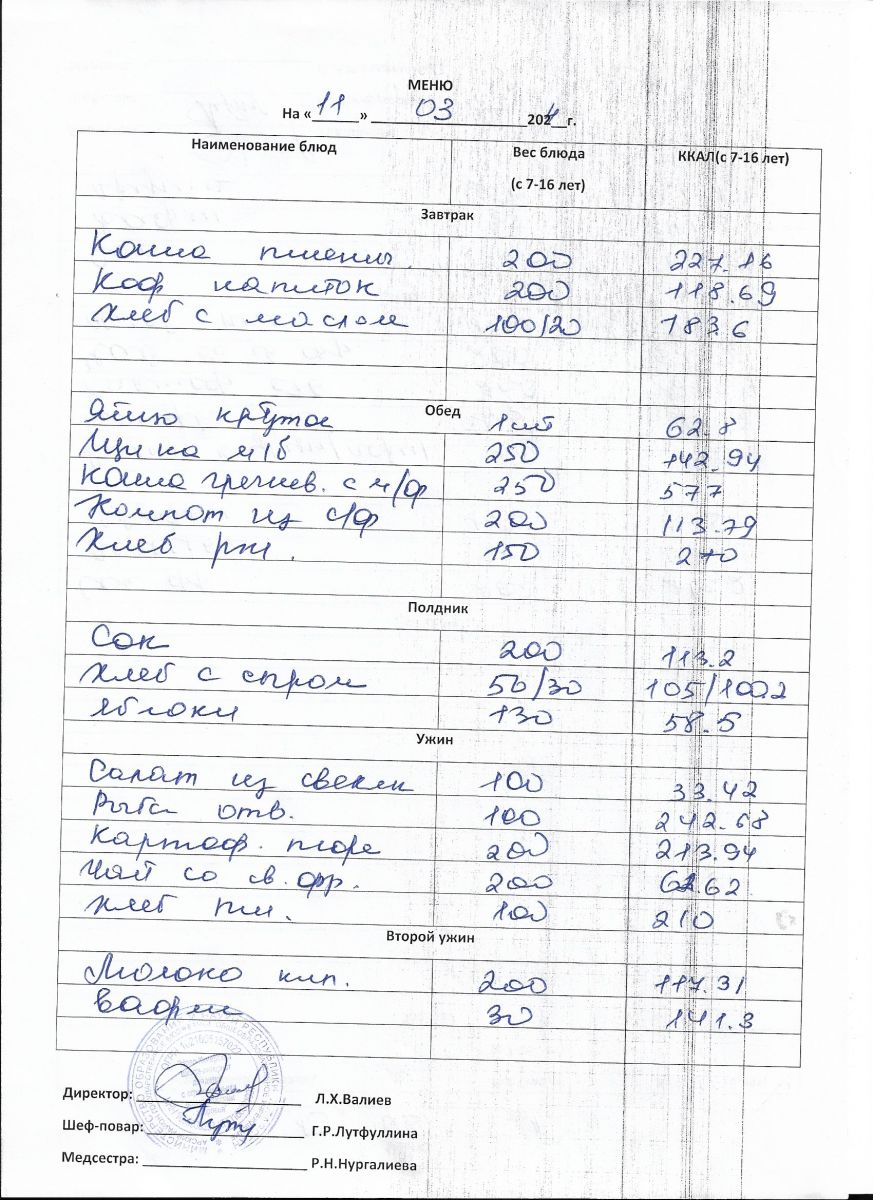 МЕНЮ
На «11» 03 2024 г.
Наименование блюд Вес блюда (с 7-16 лет) ККАЛ(с 7-16 лет)
Завтрак
Каша пшенич. 200 227.16
Коф напиток 200 118.69
Хлеб с маслом 100/20 183.6
Обед
Яйцо крутое 1шт 62.8
Щи на м/б 250 142.94
Каша гречнев. с м/ф 250 577
Компот из с/ф 200 113.79
Хлеб рж. 150 270
Полдник
Сок 200 113.2
Хлеб с сыром 50/30 105/100.2
Яблоки 130 58.5
Ужин
Салат из свеклы 100 33.42
Рыба отв. 100 242.68
Картоф. пюре 200 213.94
Чай со св. фр. 200 62
Хлеб пш. 100 210
Второй ужин
Молоко кип. 200 117.31
Вафли 30 141.3
Директор: Л.Х.Валиев
Шеф-повар: Г.Р.Лутфуллина
Медсестра: Р.Н.Нургалиева